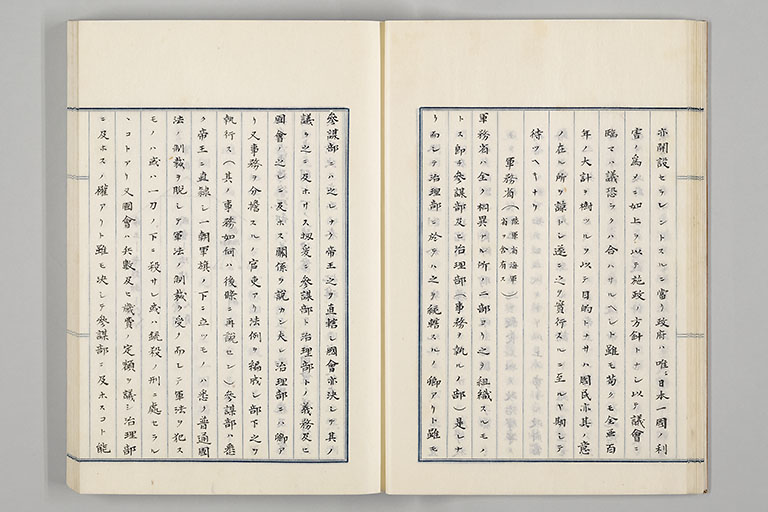 亦開設セラレントスルニ當リ政府ハ唯ニ日本一國ノ利
害ノ爲メニ如上ヲ以テ施政ノ方針トナシ以テ議會ニ
臨マハ議恐ラクハ合ハサルヘシト雖モ苟クモ金亟百
年ノ大計ヲ樹ツルヲ以テ目的トナサハ國民亦其ノ意
ノ在ル所ヲ諒トシ遂ニ之ヲ實行スルニ至ルヤ期シテ
待ツヘキナリ
軍務省(陸軍省海軍省ヲ含有ス)
軍務省ハ全ク相異ナル所ノ二部ヨリ之ヲ組織スルモノ
トス即チ參謀部及ヒ治理部(事務ヲ執ルノ部)是レナ
リ而シテ治理部ニ於テハ之ヲ統轄スルノ卿アリト雖モ
參謀部ニハ之レナク帝王之ヲ直轄シ國會亦決シテ其ノ
議ヲ之ニ及ホサス故ニ參謀部ト治理部トノ義務及ヒ
國會ノ之レニ及ホス關係ヲ說カン夫レ治理部ニハ卿ア
リ又事務ヲ分擔スルノ官吏アリ法例ヲ編成シ部下之ヲ
執行ス(其ノ事務如何ハ後條ニ再說セン)參謀部ハ悉
ク帝王ニ直隸シ一朝軍旗ノ下ニ立ツモノハ悉ク普通國
法ノ制裁ヲ脫シテ軍法ノ制裁ヲ受ク而シテ軍法ヲ犯ス
モノハ或ハ一刀ノ下ニ殺サレ或ハ銃殺ノ刑ニ處セラル
ヽコトアリ又國會ハ兵數及ヒ歲費ノ定額ヲ議シ治理部
ニ及ホスノ權アリト雖モ決シテ參謀部ニ及ホスコト能